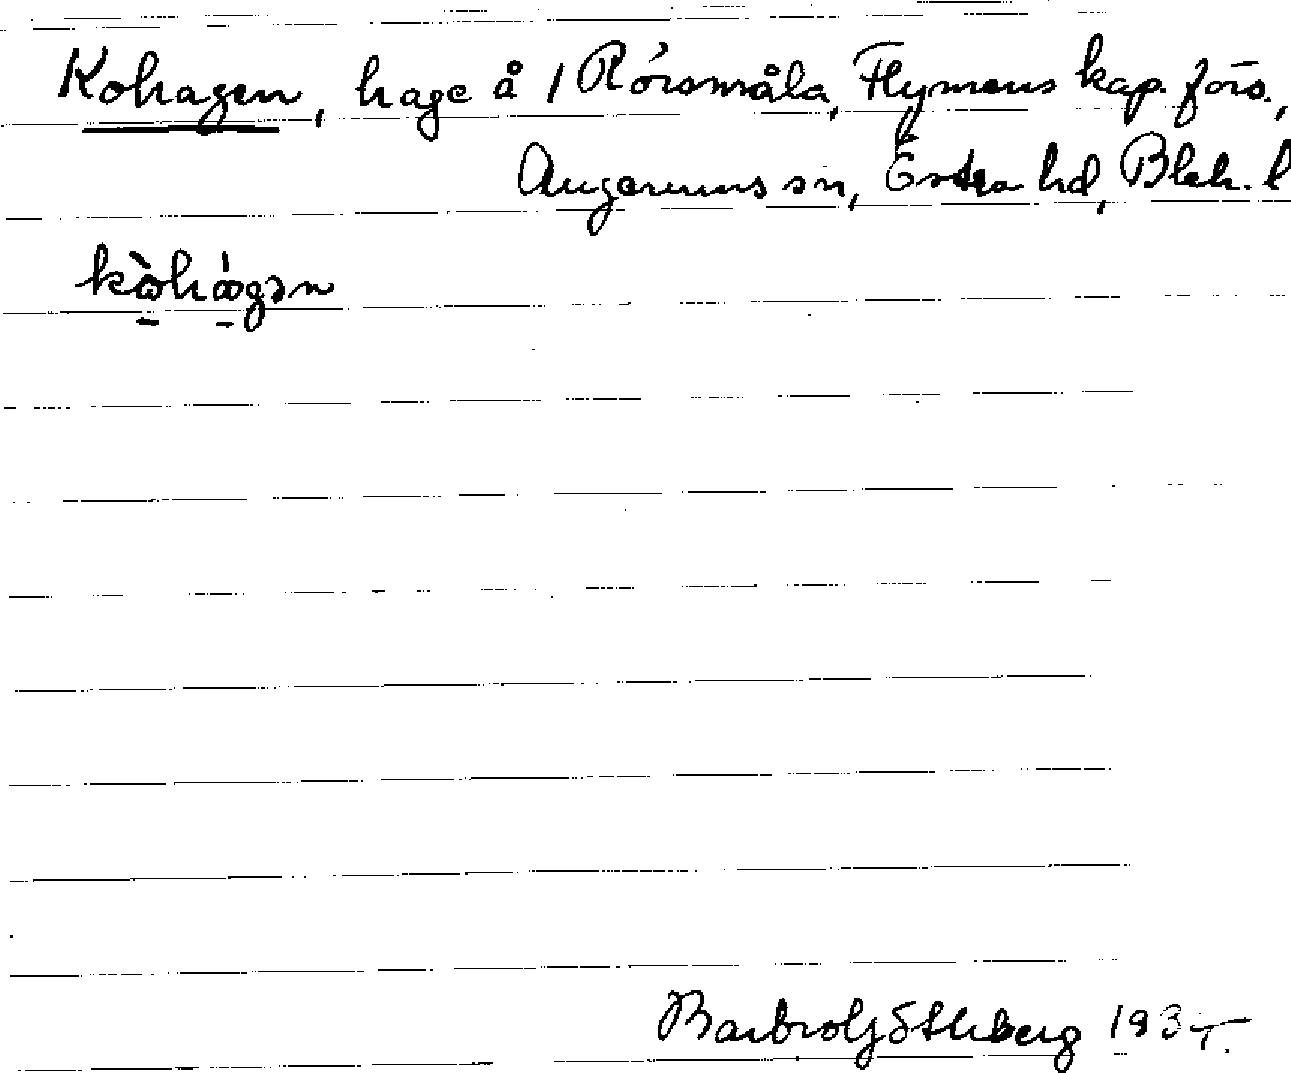 Kohagen, hage å 1 Rörsmåla, Flymens kap. förs.,
Augerums sn, Östra hd, Blek. l
Barbro Göthberg 193